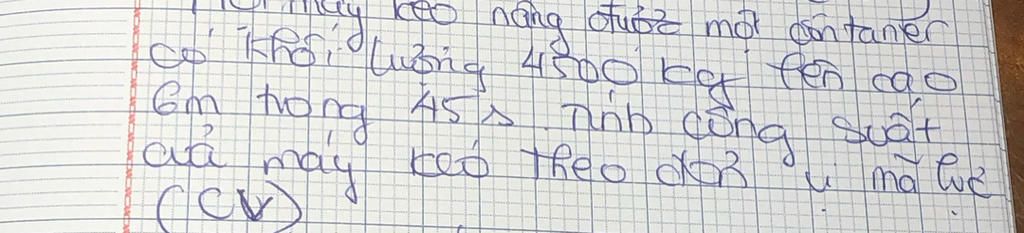 Một máy kéo nâng được một contaner
có khối lượng 4500 kg lên cao
6m trong 45s. Tính công suất
của máy kéo theo đơn vị mã lực
(CV)